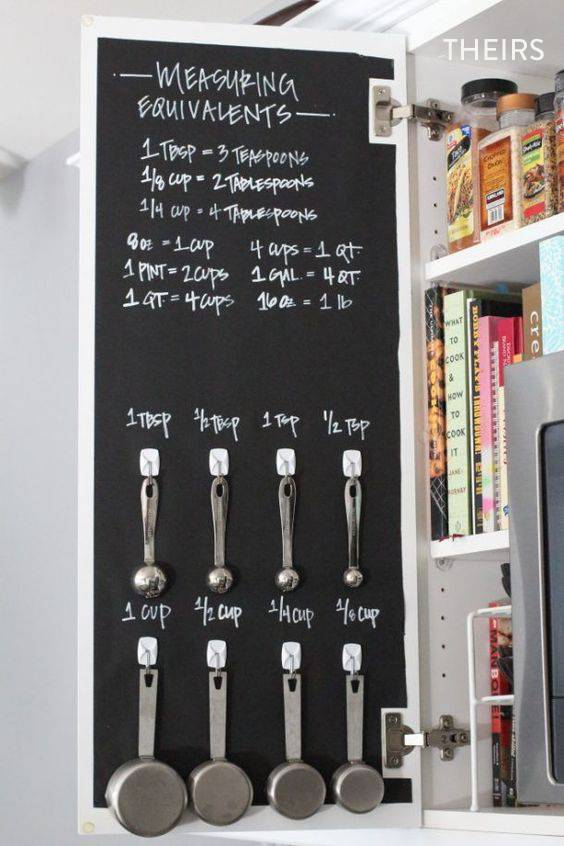 THEIRS
MEASURING
EQUIVALENTS
1 TBSP = 3 TEASPOONS
1/8 CUP = 2 TABLESPOONS
1/4 CUP = 4 TABLESPOONS
8 oz = 1 CUP 4 CUPS = 1 QT.
1 PINT = 2 CUPS 1 GAL. = 4 QT.
1 QT = 4 CUPS 16 oz = 1 lb
1 TBSP 1/2 TBSP 1 TSP 1/2 TSP
1 CUP 1/2 CUP 1/4 CUP 1/8 CUP
WHAT
TO
COOK
&
HOW
TO
COOK
IT
JANE
HORNBY
BOBBY FLAY'S
KIRKLAND